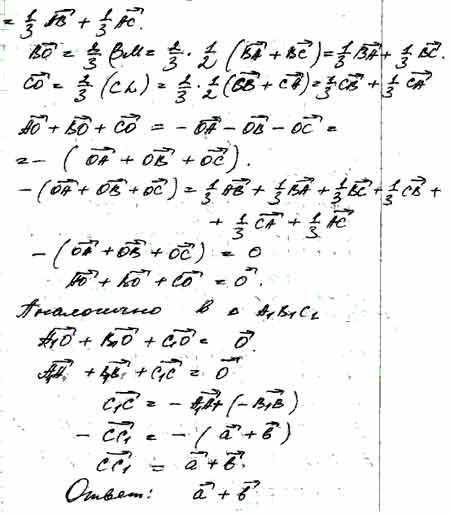 = 1/3 AB→ + 1/3 AC→.
BO→ = 2/3 BM = 2/3 · 1/2 (BA→ + BC→) = 1/3 BA→ + 1/3 BC→.
CO→ = 2/3 (CL) = 2/3 · 1/2 (CB→ + CA→) = 1/3 CB→ + 1/3 CA→
AO→ + BO→ + CO→ = - OA→ - OB→ - OC→ =
= - ( OA→ + OB→ + OC→ ).
- (OA→ + OB→ + OC→) = 1/3 AB→ + 1/3 BA→ + 1/3 BC→ + 1/3 CB→ +
+ 1/3 CA→ + 1/3 AC→
- (OA→ + OB→ + OC→) = 0
AO→ + BO→ + CO→ = 0→.
Аналогично в △ A₁B₁C₁
A₁O→ + B₁O→ + C₁O→ = 0→.
A₁A→ + B₁B→ + C₁C→ = 0→
C₁C→ = - A₁A→ + (- B₁B→)
- CC₁→ = - ( a→ + b→ )
CC₁→ = a→ + b→.
Ответ: a→ + b→